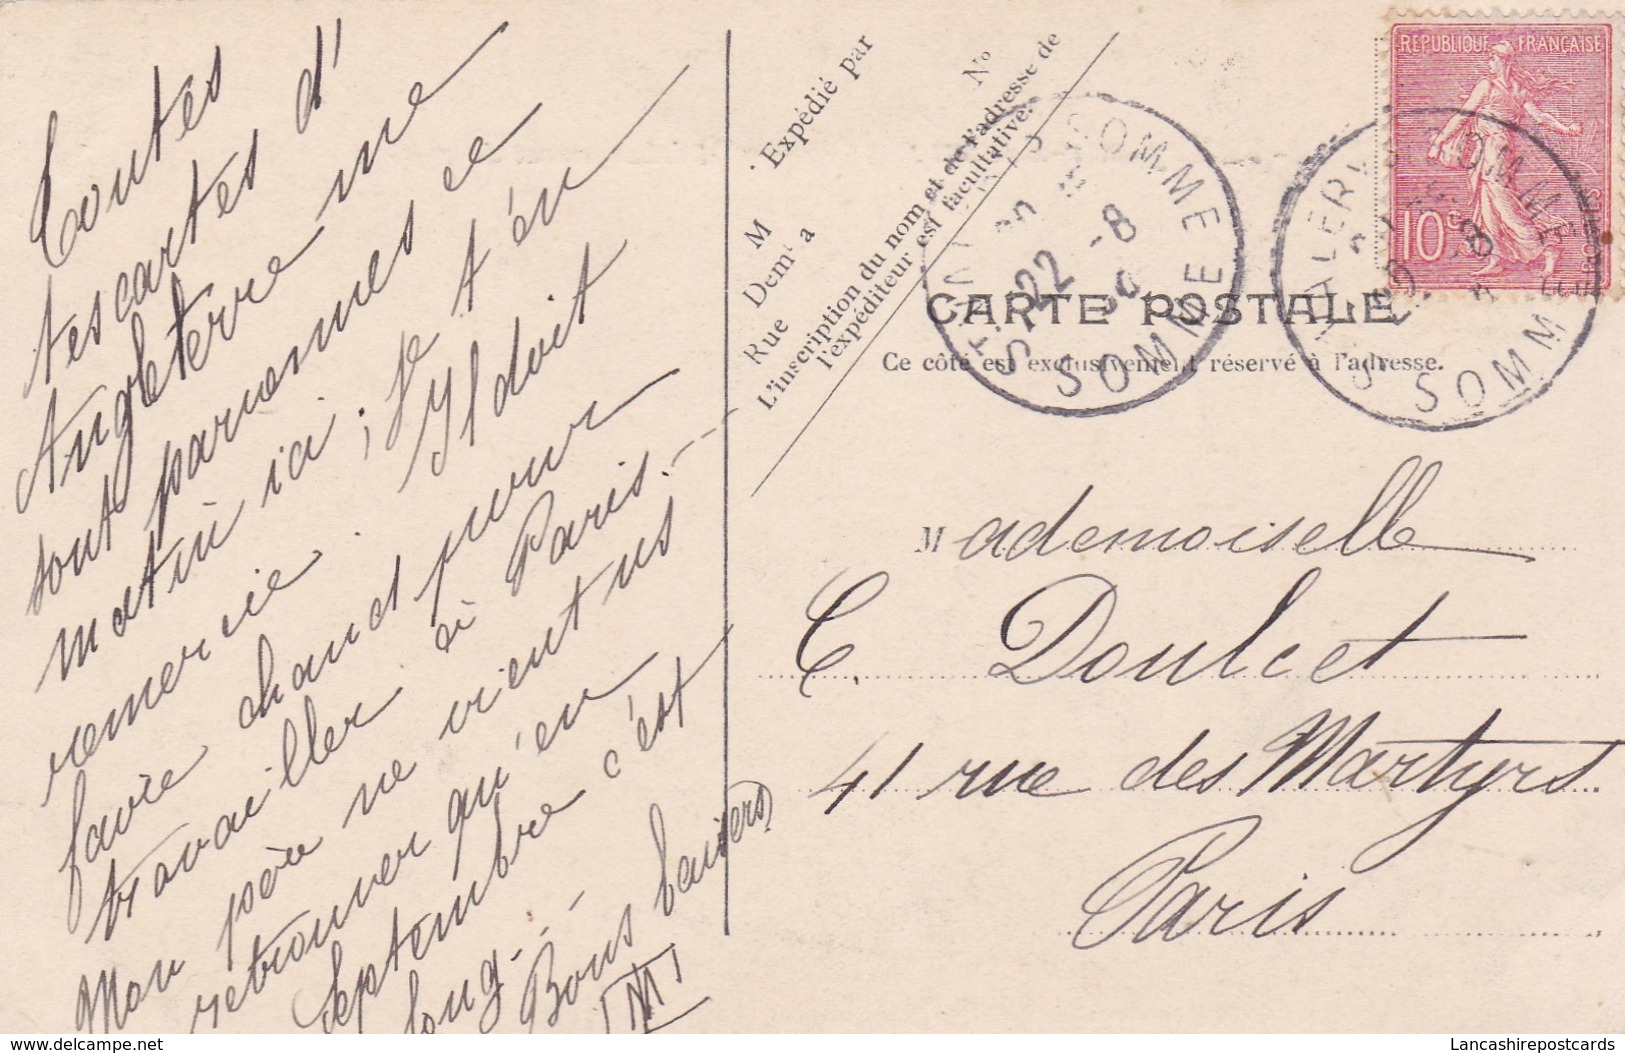 Toutes
tes cartes d'
Angleterre me
sont parvenues ce
matin ici ; Je t'en
remercie. Il doit
faire chaud pour
travailler à Paris. —
Mon père ne vient us
retrouver qu'en
Septembre c'est
long. —
Bons baisers
M
Expédié par
M
Demt a
Rue
No
L'inscription du nom et de l'adresse de
l'expéditeur est facultative.
REPUBLIQUE FRANÇAISE
10c
POSTES
SOMME
22 -8
SOMME
VALERY SOMME
SOMME
CARTE POSTALE
Ce côté est exclusivement réservé à l'adresse.
Mademoiselle
C. Doulcet
41 rue des Martyrs
Paris
delcampe.net
Lancashirepostcards